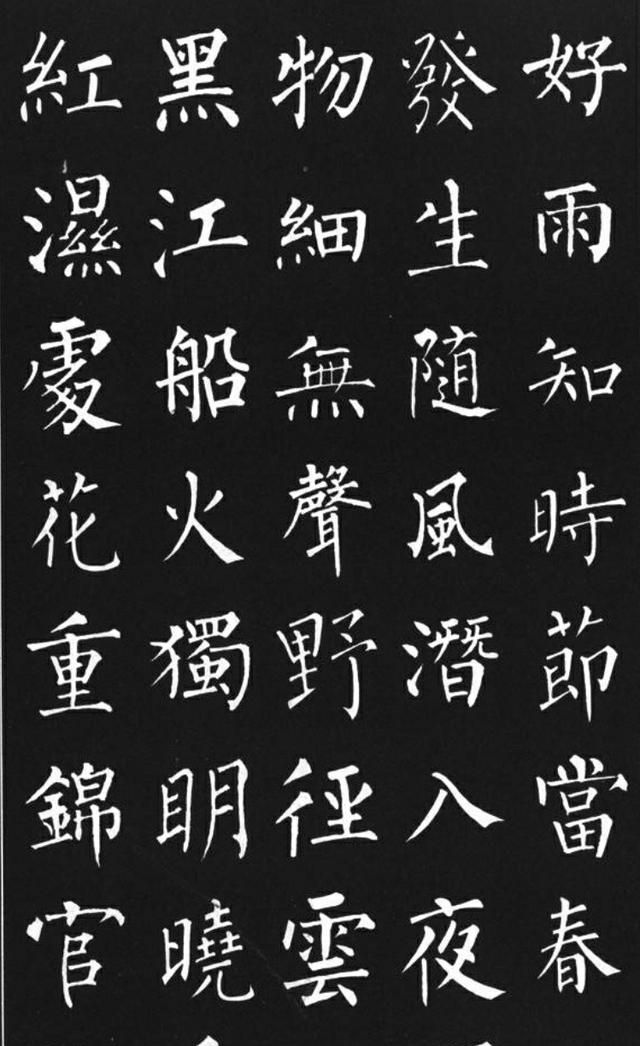 好雨知時節當春
發生随風潜入夜
物細無聲野徑雲
黑江船火獨眀曉
紅濕處花重錦官